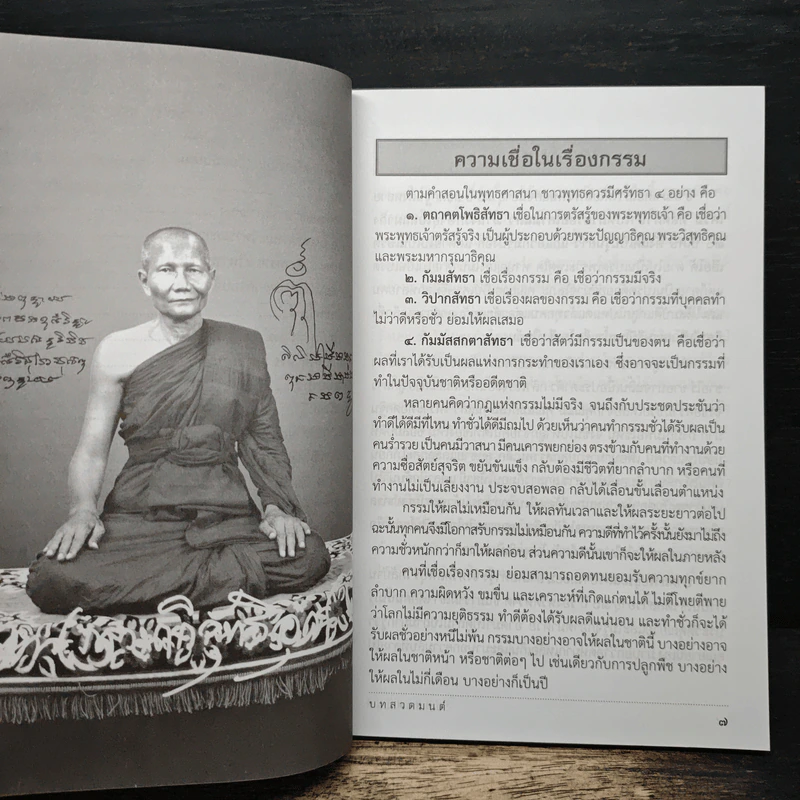 ความเชื่อในเรื่องกรรม
ตามคำสอนในพุทธศาสนา ชาวพุทธควรมีศรัทธา ๔ อย่าง คือ
๑. ตถาคตโพธิสัทธา เชื่อในการตรัสรู้ของพระพุทธเจ้า คือ เชื่อว่า
พระพุทธเจ้าตรัสรู้จริง เป็นผู้ประกอบด้วยพระปัญญาธิคุณ พระวิสุทธิคุณ
และพระมหากรุณาธิคุณ
๒. กัมมสัทธา เชื่อเรื่องกรรม คือ เชื่อว่ากรรมมีจริง
๓. วิปากสัทธา เชื่อเรื่องผลของกรรม คือ เชื่อว่ากรรมที่บุคคลทำ
ไม่ว่าดีหรือชั่ว ย่อมให้ผลเสมอ
๔. กัมมัสสกตาสัทธา เชื่อว่าสัตว์มีกรรมเป็นของตน คือเชื่อว่า
ผลที่เราได้รับเป็นผลแห่งการกระทำของเราเอง ซึ่งอาจจะเป็นกรรมที่
ทำในปัจจุบันชาติหรืออดีตชาติ
หลายคนคิดว่ากฎแห่งกรรมไม่มีจริง จนถึงกับประชดประชันว่า
ทำดีได้ดีมีที่ไหน ทำชั่วได้ดีมีถมไป ด้วยเห็นว่าคนทำกรรมชั่วได้รับผลเป็น
คนร่ำรวย เป็นคนมีวาสนา มีคนเคารพยกย่อง ตรงข้ามกับคนที่ทำงานด้วย
ความซื่อสัตย์สุจริต ขยันขันแข็ง กลับต้องมีชีวิตที่ยากลำบาก หรือคนที่
ทำงานไม่เป็นเลี่ยงงาน ประจบสอพลอ กลับได้เลื่อนขั้นเลื่อนตำแหน่ง
กรรมให้ผลไม่เหมือนกัน ให้ผลทันเวลาและให้ผลระยะยาวต่อไป
ฉะนั้นทุกคนจึงมีโอกาสรับกรรมไม่เหมือนกัน ความดีที่ทำไว้ครั้งนั้นยังมาไม่ถึง
ความชั่วหนักกว่าก็มาให้ผลก่อน ส่วนความดีนั้นเขาก็จะให้ผลในภายหลัง
คนที่เชื่อเรื่องกรรม ย่อมสามารถอดทนยอมรับความทุกข์ยาก
ลำบาก ความผิดหวัง ขมขื่น และเคราะห์ที่เกิดแก่ตนได้ ไม่ตีโพยตีพาย
ว่าโลกไม่มีความยุติธรรม ทำดีต้องได้รับผลดีแน่นอน และทำชั่วก็จะได้
รับผลชั่วอย่างหนีไม่พ้น กรรมบางอย่างอาจให้ผลในชาตินี้ บางอย่างอาจ
ให้ผลในชาติหน้า หรือชาติต่อๆ ไป เช่นเดียวกับการปลูกพืช บางอย่าง
ให้ผลในไม่กี่เดือน บางอย่างก็เป็นปี
บทสวดมนต์
๗